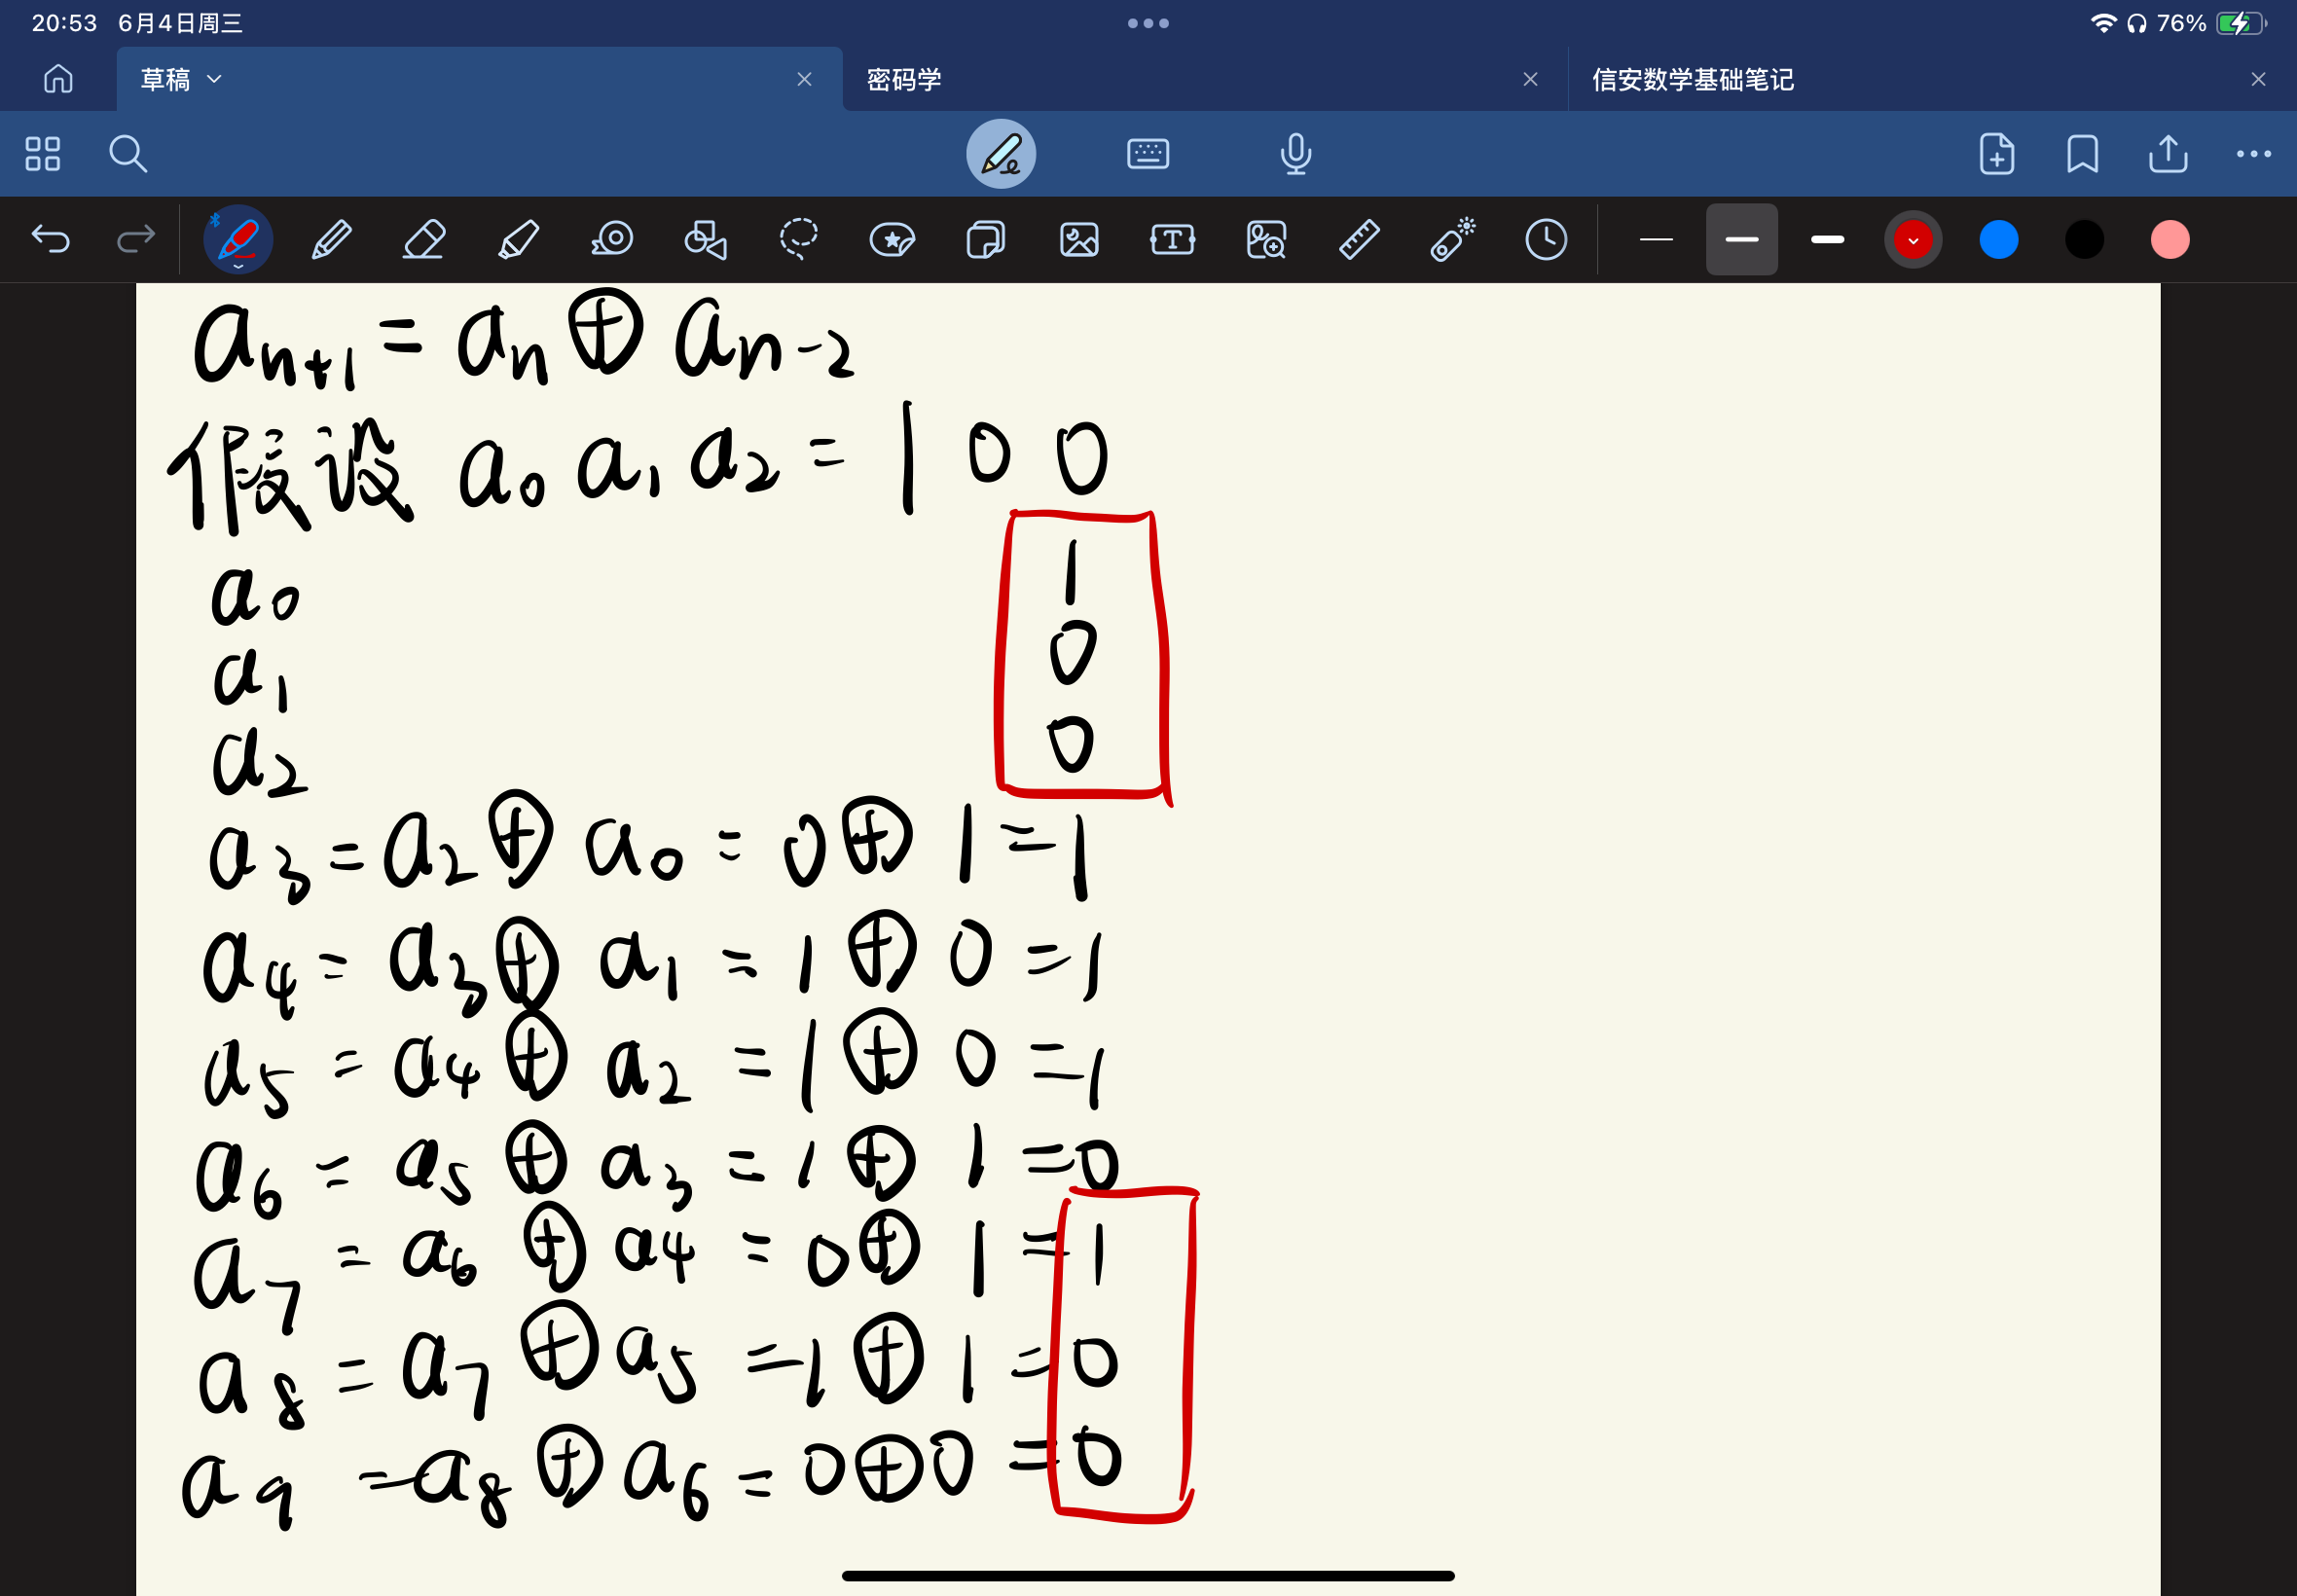 20:53 6月4日周三 76%
草稿 密码学 信安数学基础笔记
aₙ₊₁ = aₙ ⊕ aₙ₋₂
假设 a₀ a₁ a₂ = 1 0 0
a₀ 1
a₁ 0
a₂ 0
a₃ = a₂ ⊕ a₀ = 0 ⊕ 1 = 1
a₄ = a₃ ⊕ a₁ = 1 ⊕ 0 = 1
a₅ = a₄ ⊕ a₂ = 1 ⊕ 0 = 1
a₆ = a₅ ⊕ a₃ = 1 ⊕ 1 = 0
a₇ = a₆ ⊕ a₄ = 0 ⊕ 1 = 1
a₈ = a₇ ⊕ a₅ = 1 ⊕ 1 = 0
a₉ = a₈ ⊕ a₆ = 0 ⊕ 0 = 0